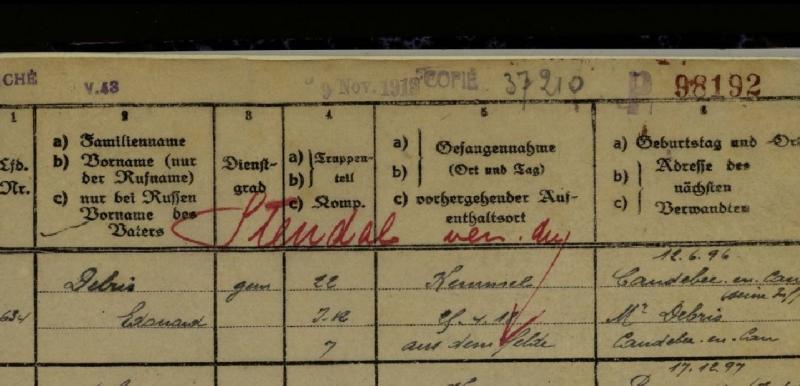 CHÉ V.43 9 Nov. 1918 COPIÉ 37210 P 98192
1 2 3 4 5 6
Lfd. Nr.
a) Familienname
b) Vorname (nur
der Rufname)
c) nur bei Russen
Vorname des
Vaters
Dienst-
grad
a) Truppen-
b) teil
c) Komp.
a) Gefangennahme
b) (Ort und Tag)
c) vorhergehender Auf-
enthaltsort
a) Geburtstag und -Ort
b) Adresse des
nächsten
c) Verwandten
Stendal
12.6.96
Debris gem 22 Kemmel Caudebec-en-Cau
634 Edouard J.R. 25.4.18 Mr Debris
7 aus dem Felde Caudebec-en-Cau
17.12.97